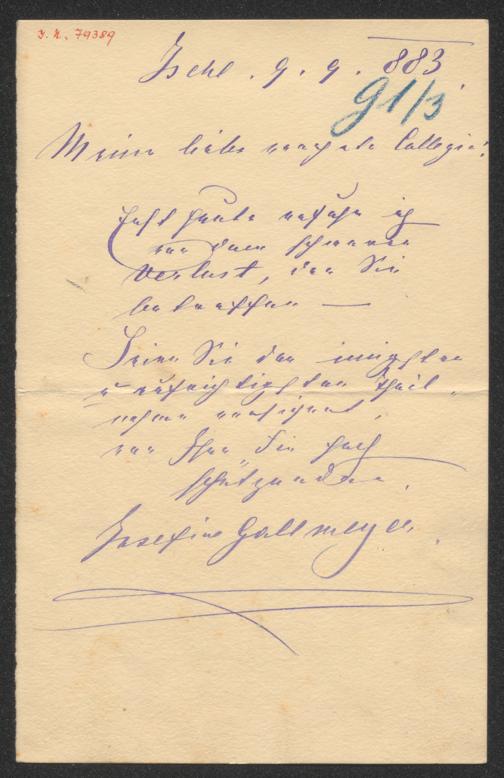 J. N. 79389
Ischl . 9. 9. 883.
91/3
Meine liebe verehrte Collegin!
Erst heute erfuhr ich
von dem schweren
Verlust, der Sie
betroffen —
Seien Sie der innigsten
u aufrichtigsten Theil-
nahme versichert,
von Ihrer Sie hoch
schätzenden.
Josefine Gallmeyer.